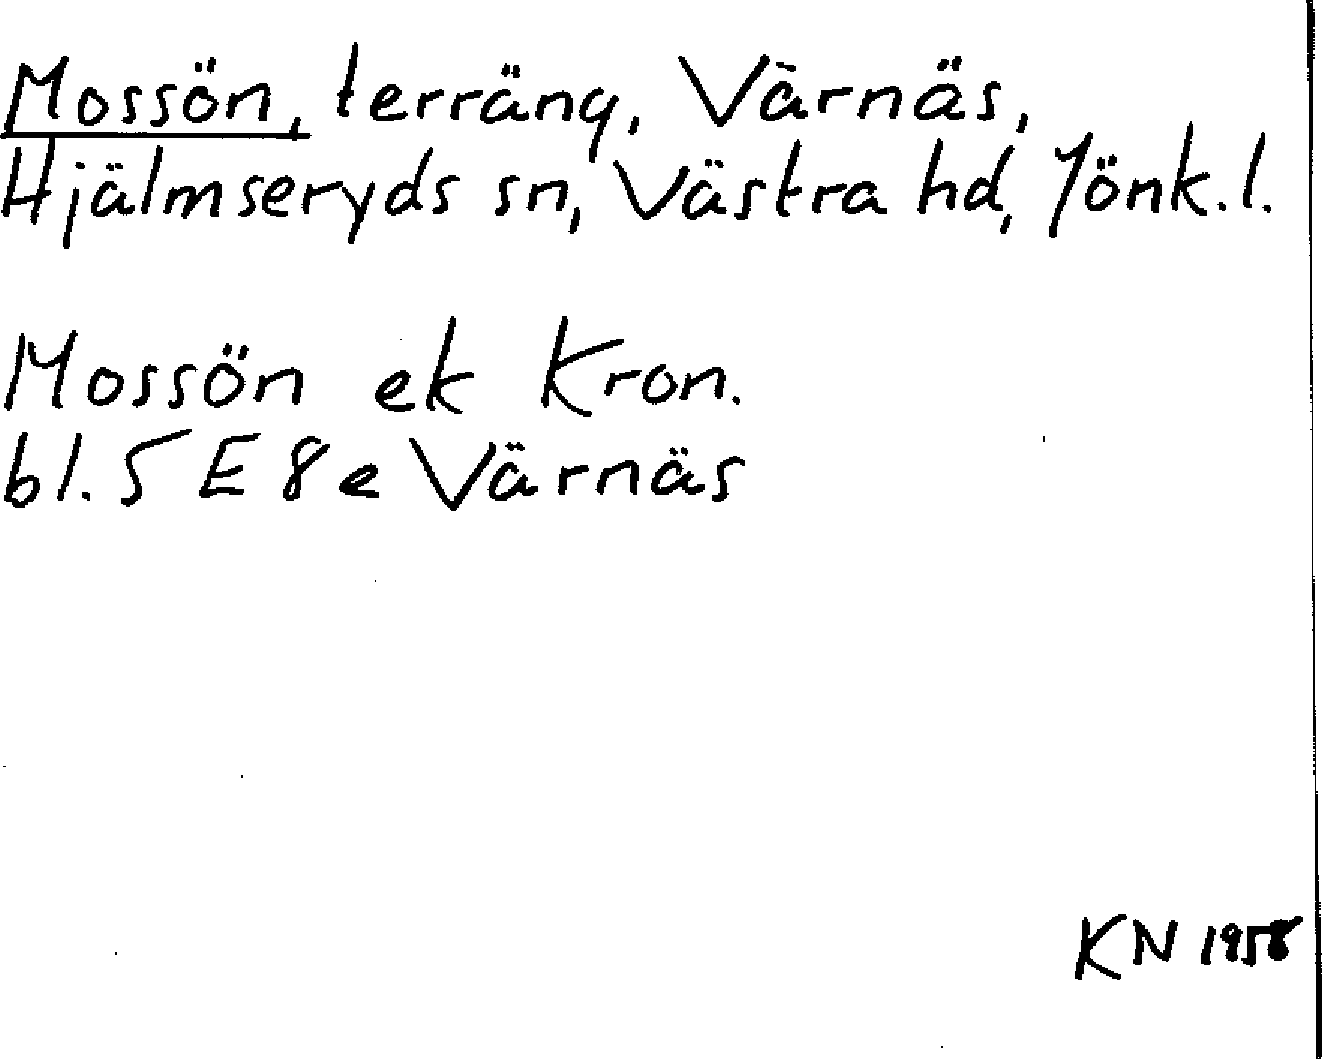 Mossön, terräng, Värnäs,
Hjälmseryds sn, Västra hd, Jönk. l.
Mossön ek Kron.
bl. 5 E 8 e Värnäs
KN 1958